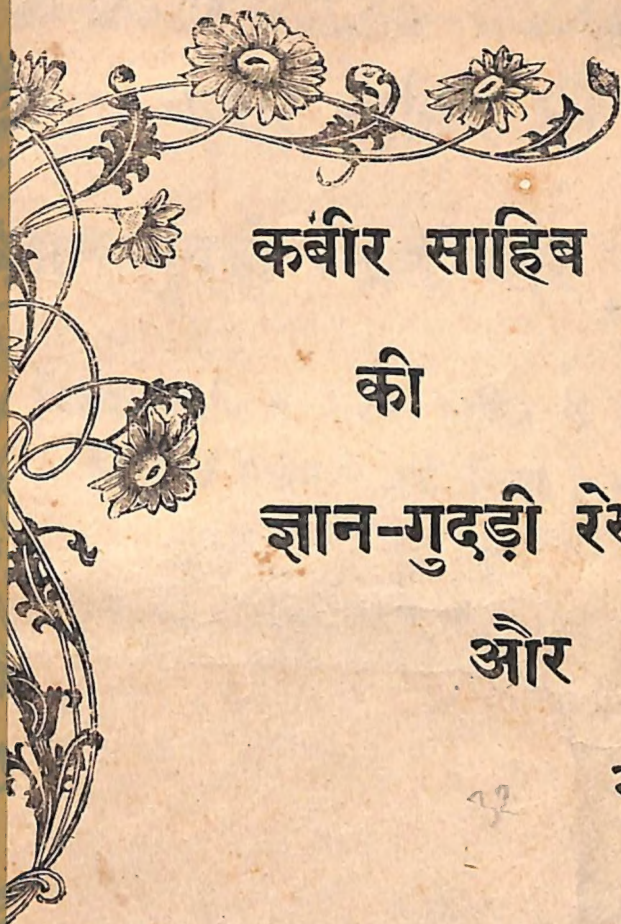 कबीर साहिब
की
ज्ञान-गुदड़ी
और